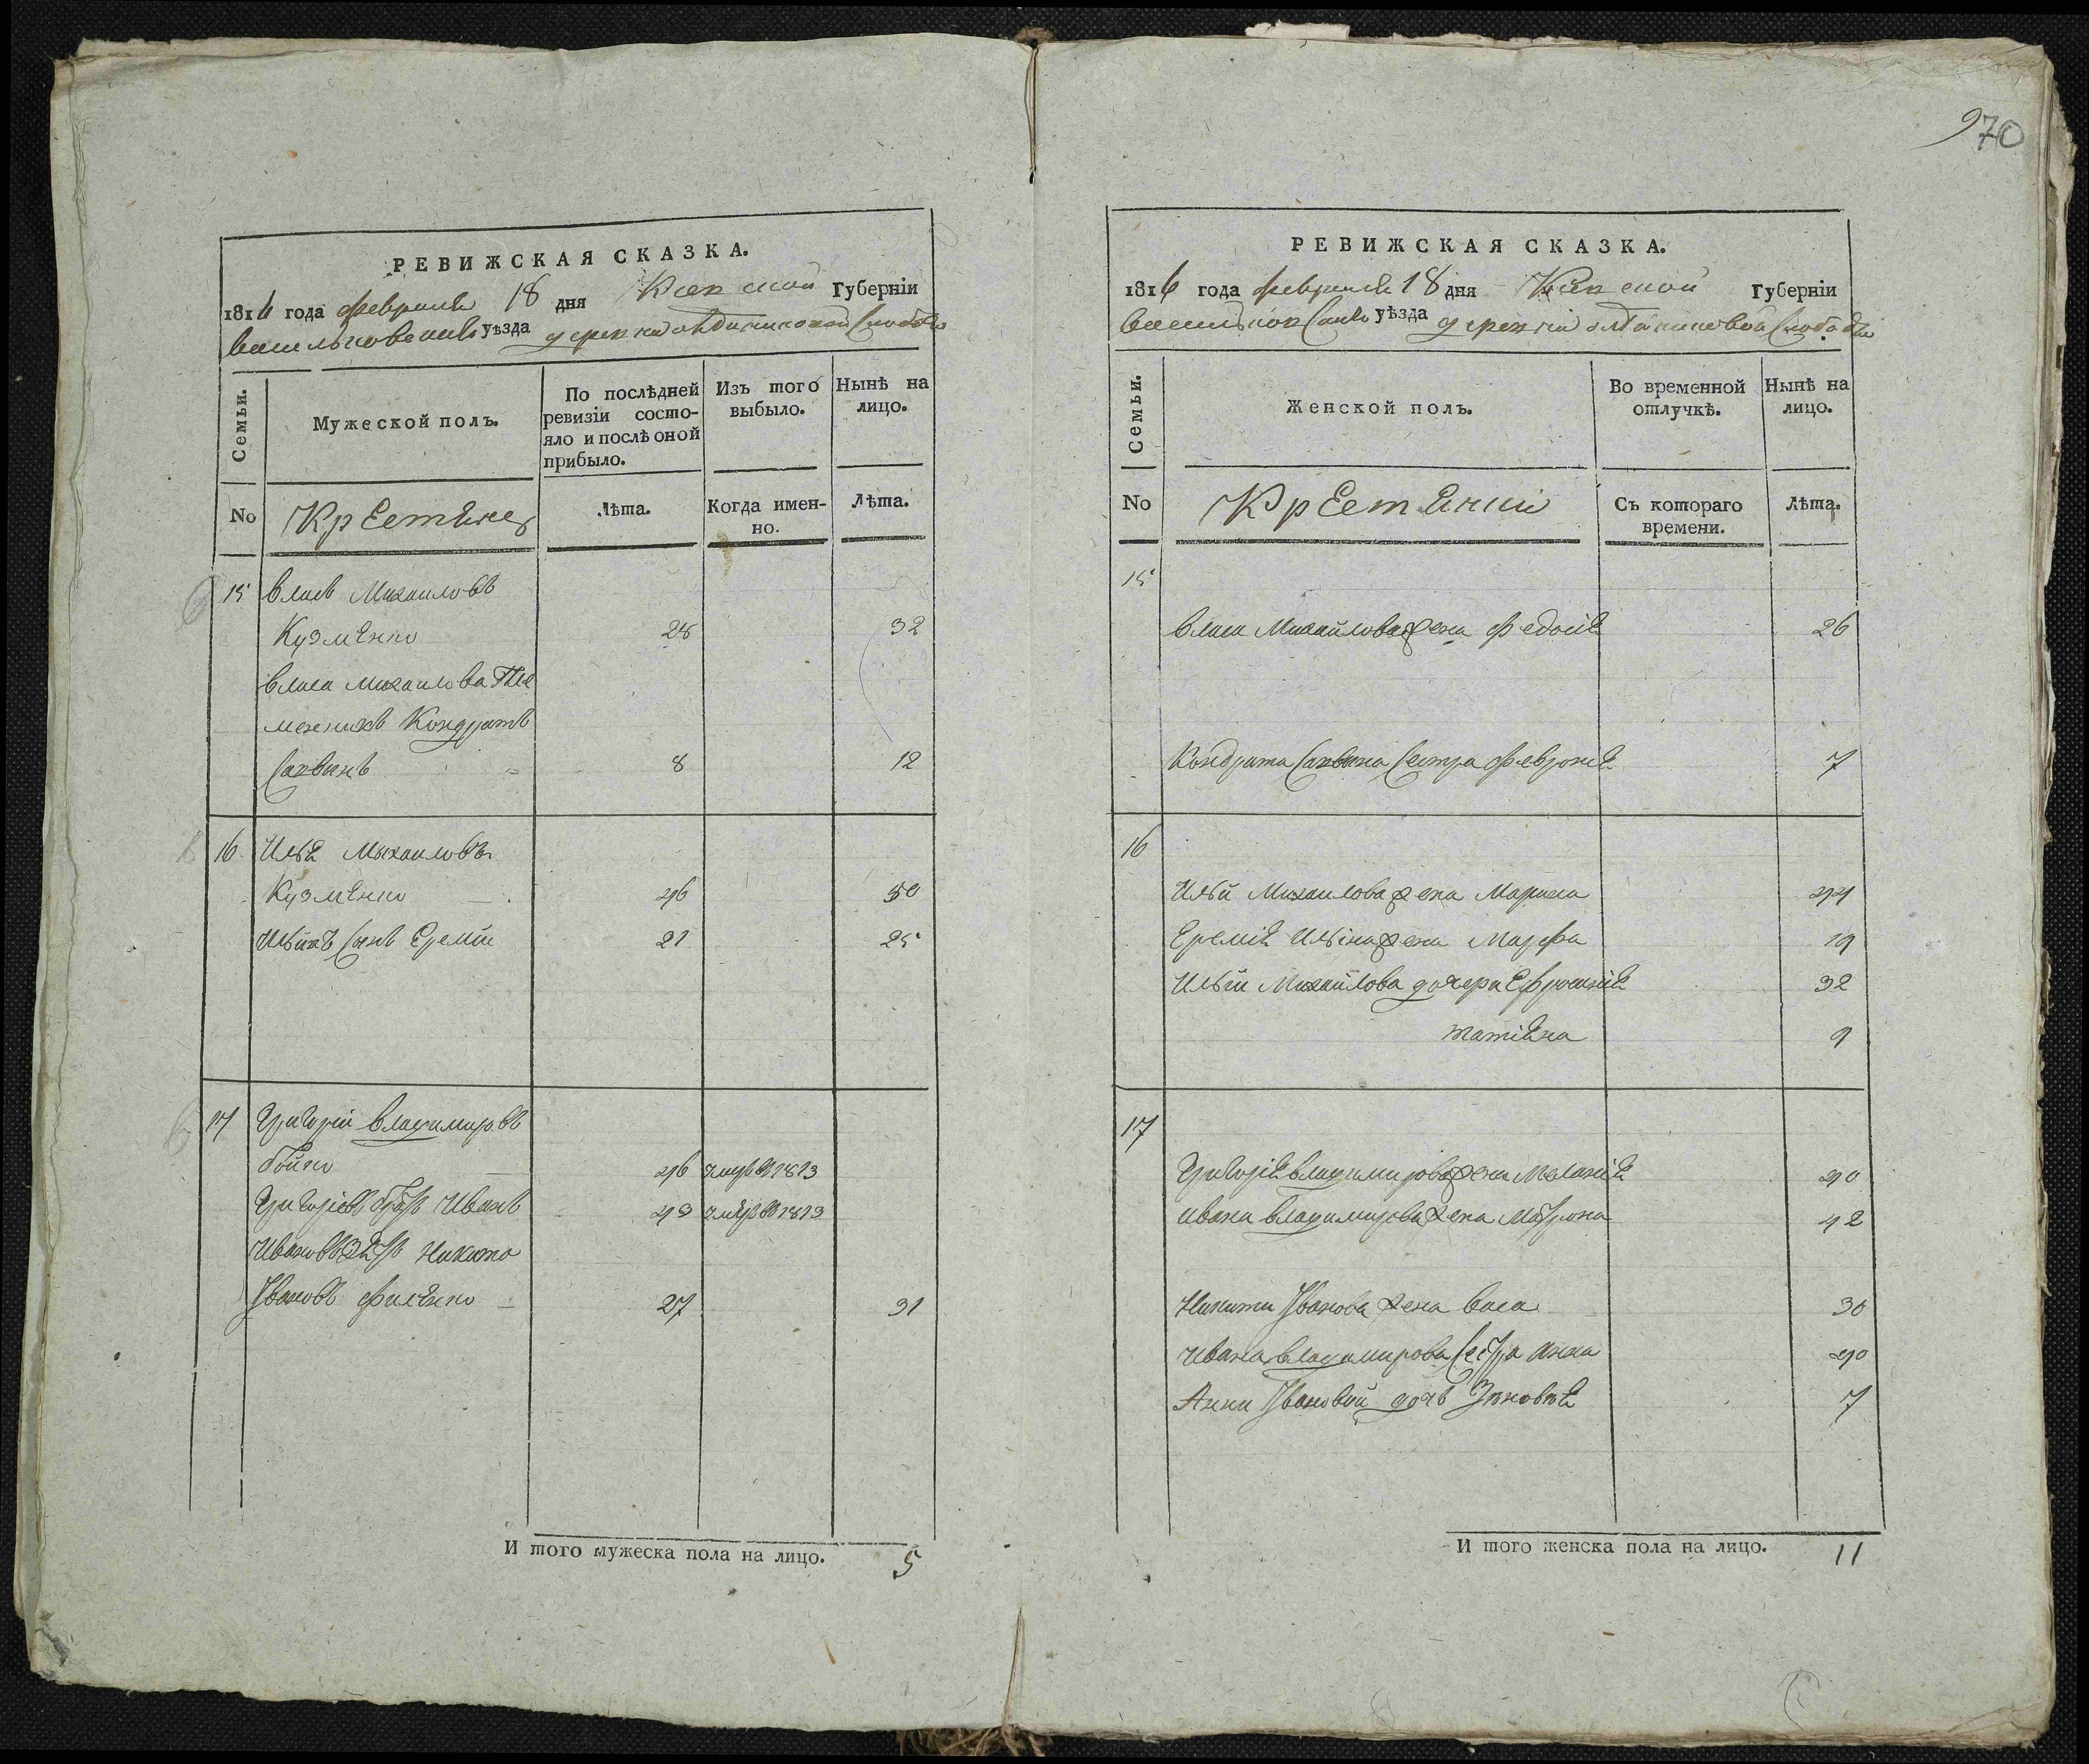 970
РЕВИЖСКАЯ СКАЗКА.
1816 года февраля 18 дня Киевской Губерніи
васильковскаго уѣзда деревни слободы
Семьи.
Мужеской полъ.
По послѣдней ревизіи состояло и послѣ оной прибыло.
Изъ того выбыло.
Нынѣ на лицо.
No
Крестяне
Лѣта.
Когда именно.
Лѣта.
15 власъ Михаиловъ
Кузмѣнко 28 32
власа михаилова пле
менникъ Кондратъ
Саввинъ 8 12
16 Илья Михаиловъ
Кузмѣнко 46 50
Ильинъ Сынъ Еремій 21 25
17 Григорій владимировъ
бойко 46 умре въ 1813
Григоріевъ братъ Иванъ 43 умре въ 1813
Ивановъ зять Никита
Ивановъ 27 31
И того мужеска пола на лицо. 5
РЕВИЖСКАЯ СКАЗКА.
1816 года февраля 18 дня Киевской Губерніи
васильковскаго уѣзда деревни слободы
Семьи.
Женской полъ.
Во временной отлучкѣ.
Нынѣ на лицо.
No
Крестянки
Съ котораго времени.
Лѣта.
15
власа Михайлова жена Федосія 26
Кондрата Саввина Сестра Февронія 7
16
Ильи Михаилова жена Марина 44
Еремія Ильина жена Марфа 19
Ильи Михайлова дочери Ефросинія 32
татіяна 9
17
Григорія владимирова жена Меланія 40
ивана владимирова жена Матрона 42
Никиты Иванова жена васа 30
ивана владимирова Сестра анна 40
Анны Ивановой дочь Зѣновія 7
И того женска пола на лицо. 11